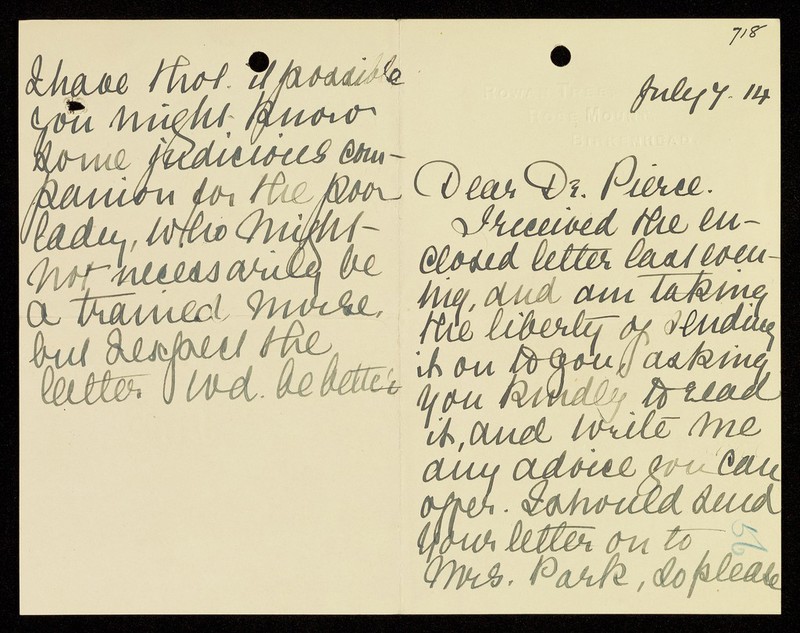 718
July 7. 14
Dear Dr. Pierce.
I received the en-
closed letter last even-
ing, and am taking
the liberty of sending
it on to you, asking
you kindly to read
it, and write me
any advice you can
offer. I should send
your letter on to
Mrs. Park, so please
56
I have thot. if possible
you might know
some judicious com-
panion for the poor
lady, who might
not necessarily be
a trained nurse,
but I expect the
latter wd. be better